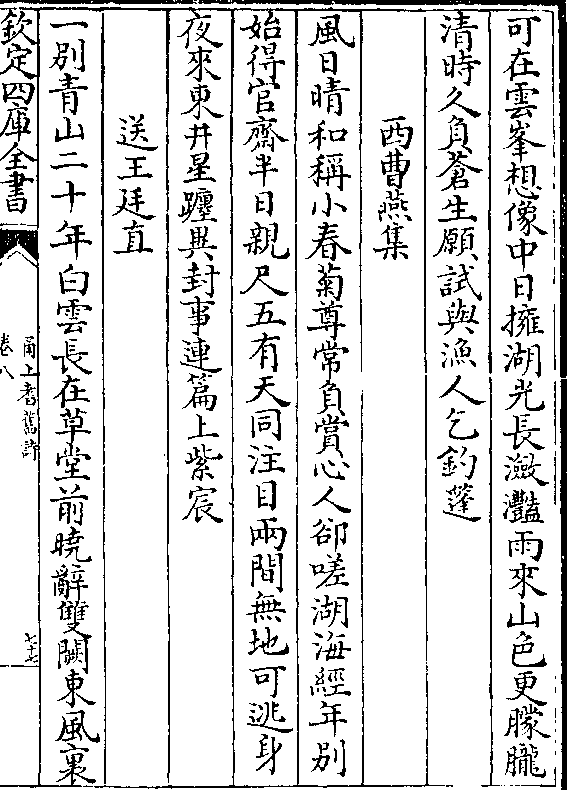 可在雲峯想像中日擁湖光長瀲灩雨來山色更朦朧
清時久負蒼生願試與漁人乞釣篷
西曹燕集
風日晴和稱小春菊尊常負賞心人卻嗟湖海經年別
始得官齋半日親尺五有天同注目兩間無地可逃身
夜來東井星躔異封事連篇上紫宸
送王廷直
一別青山二十年白雲長在草堂前曉辭雙闕東風裏
欽定四庫全書
甬上耆舊詩
卷八
七十七